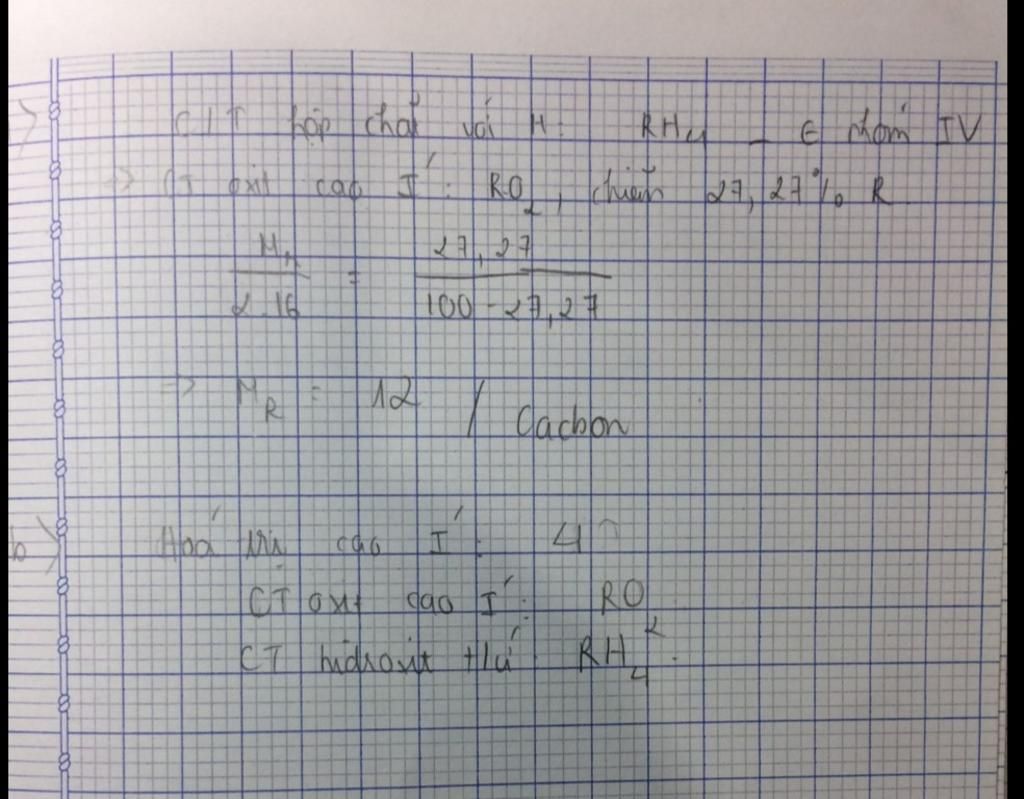 CTT hợp chất với H: RH4 - ∈ nhóm IV
=> CT oxit cao I': RO2, chiếm 27,27% R
MR / 2.16 = 27,27 / 100 - 27,27
=> MR = 12 / Cacbon
b) Hoá trị cao I': 4
CT oxit cao I': RO2
CT hidroxit tứ RH4.